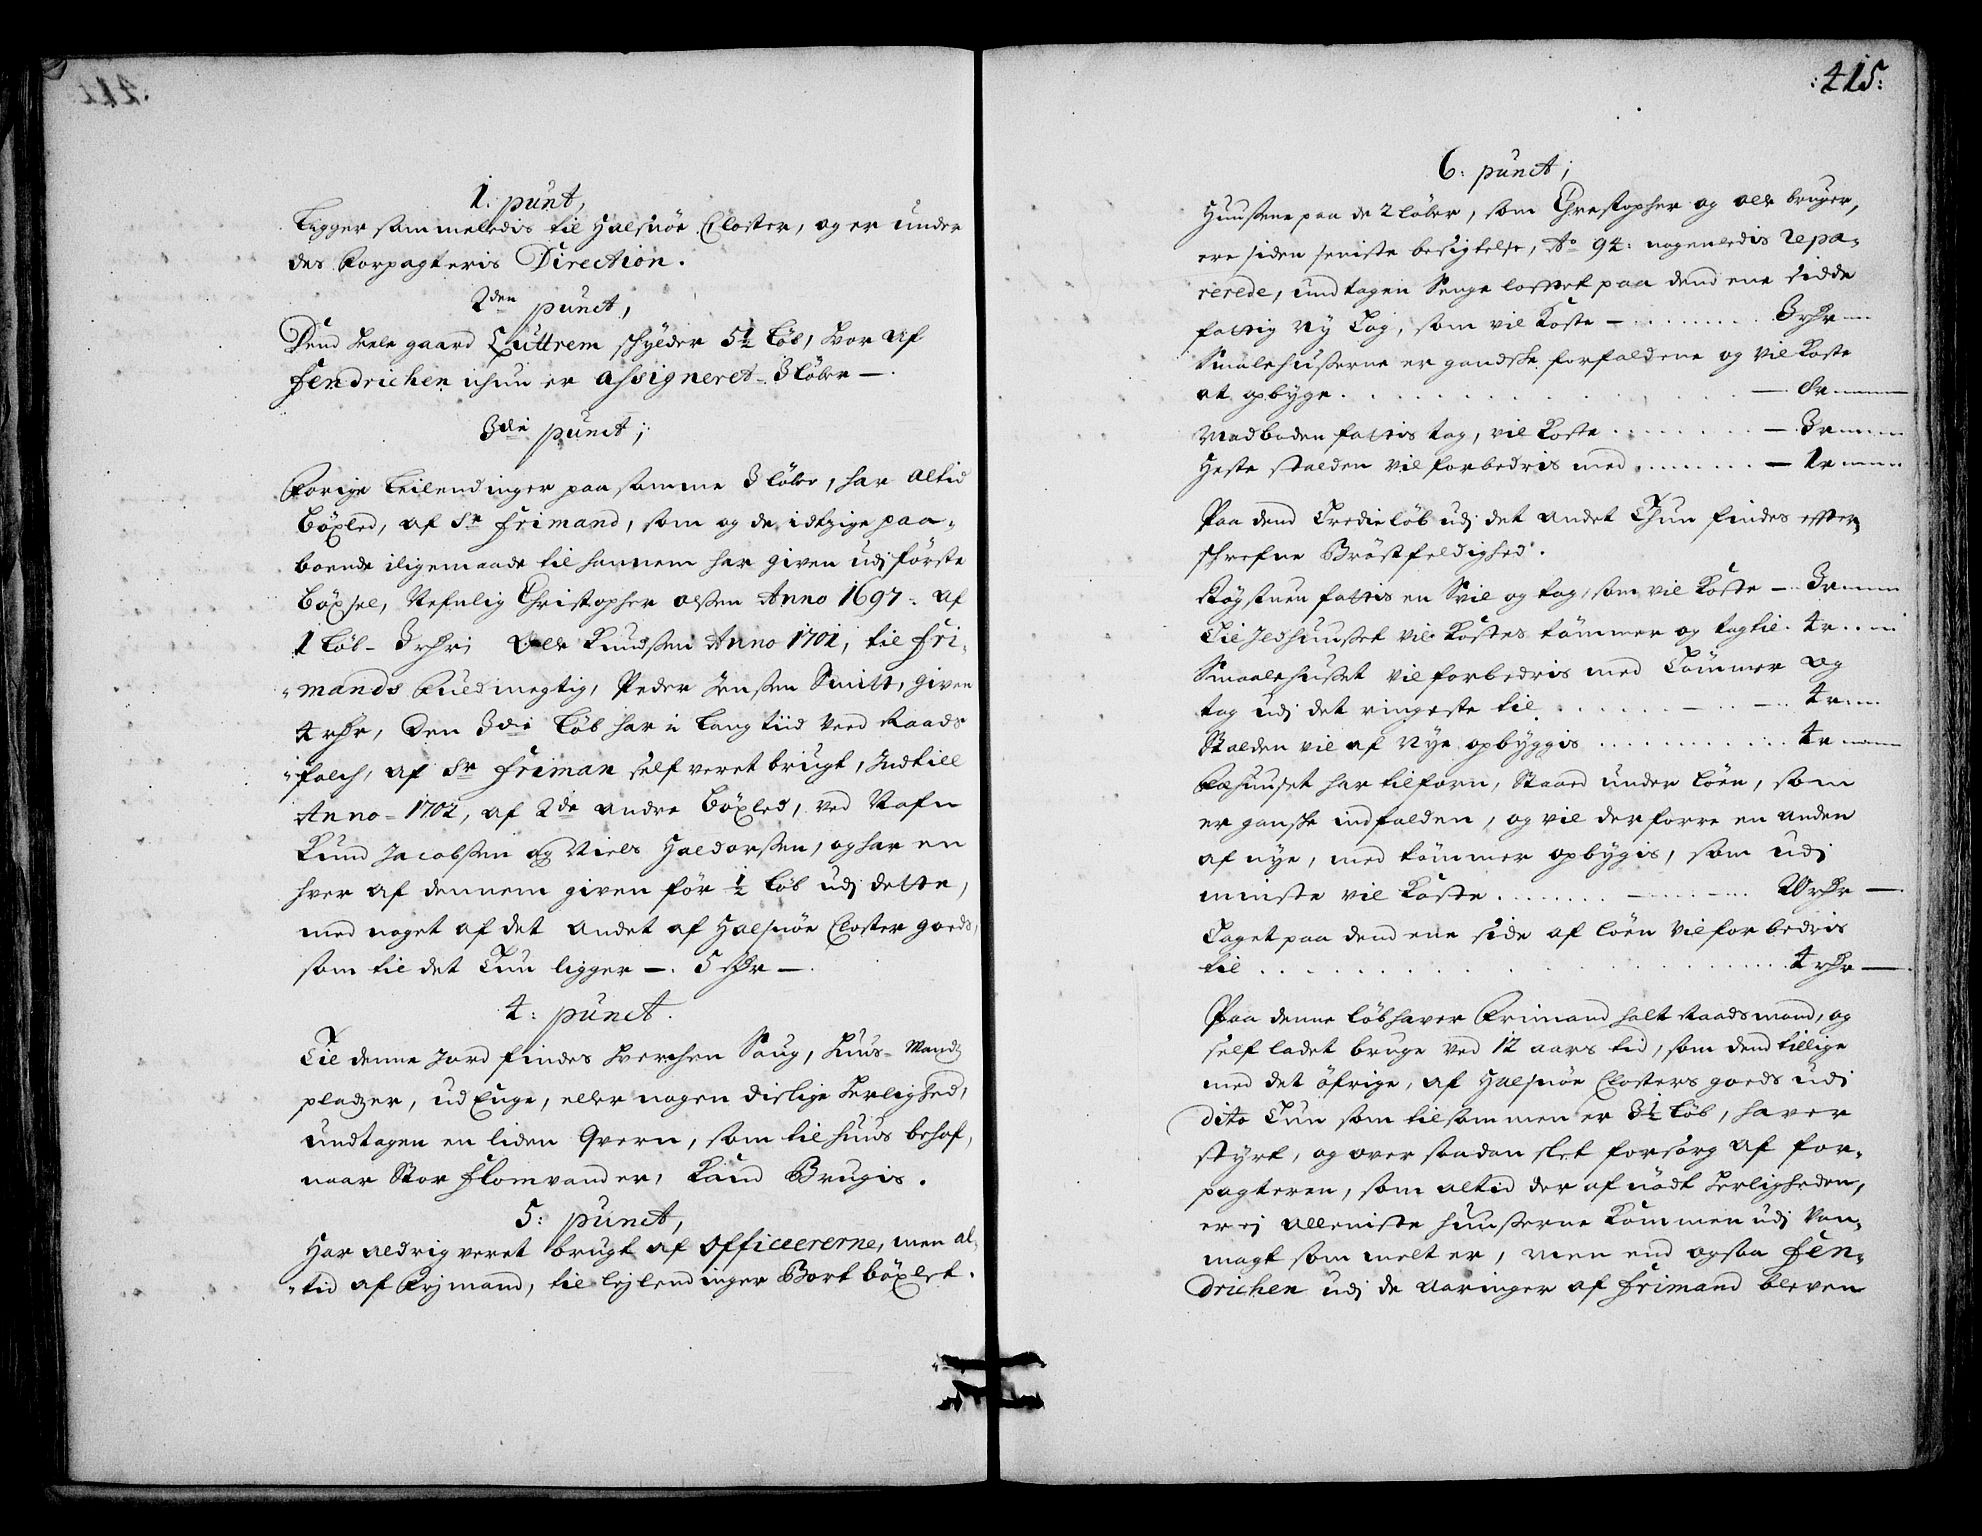 1. punt,
Ligger sammeledis til Halsnöe Closter, og er under
des Forpagteris Direction.
2den punct,
Dend heele gaard Quttrem schylder 5½ Löb, hvor af
fendrichen ichun er assigneret - 3 löber —.
3die punct;
Forige Leilendinger paa samme 3 löber, har altid
böxled, af Sr frimand, som og de idtzige paa-
boende iligemaade til hannem har given udj förste
böxsel, Nefnlig Christopher olssen Anno 1697 - af
1 Löb - 3 rdr; Ole Knudssen Anno 1701, til fri-
"mands fuldmegtig, Peder Jenssen Smitt, given
4 rdr, Den 3die Löb har i Lang tiid veed Raads-
"folch, af Sr friman self veret brugt, Indtill
Anno - 1702, af 2de andre böxled, ved Nafn
Knud Jacobssen og Niels Haldorssen, og har en
hver af dennem given för ½ Löb udj dette,
med noget af det andet af Halsnöe Closter goeds,
som til det Tun ligger —. 5 rdr —.
4: punct.
Til denne Jord findes hverchen Saug, Huus-Mandz
pladzer, ud Enge, eller nogen dislige herlighed,
undtagen en liden Qvern, som til huus behof,
naar Stor flomvand er, Kand Brugis.
5: punct,
Har aldrig veret brugt af officererne, men al-
"tid af Frjmand, til lejlendinger Bort böxlet.
:415:
6: punct;
Huussene paa de 2 löber, som Chrestopher og ole bruger,
ere siden seniste besigtelse, Ao 94: nogenledis repa-
rerede, undtagen Senge lofftet paa dend ene sidde
fattig Ny Tag, som vil Koste — . . . . . . . . 3 rdr —
Smalehusserne er gandske forfaldene og vil Koste
at opbyge . . . . . . . . . . . . — 8 r ——
Madboden fattis tag, vil Koste . . . . . . . . — 3 r ——
Heste stalden vil forbedris med . . . . . . . — 1 r ——
Paa dend Tredie löb udj det andet Thun findes effter-
schrefne Bröstfeldighed.
Röygstuen fattis en Svil og tag, som vil Koste — 3 r ——
Til Jldhuusset vil Kostes tömmer og tag til. 4 r . . —
Smaalehusset vil forbedris med Tömmer og
tag udj det ringeste til . . . . . . — . . — . . 4 r ——
Stalden vil af Nye opbyggis . . . . . . . . . . 4 r ——
Fæhuuset har tilforn, Staaed under löen, som
er ganske indfalden, og vil derforre en anden
af nye, med tömmer opbygis, som udj
minste vil Koste . . . . . . . — . . . — . . . 10 rdr —.
Taget paa dend ene side af löen vil forbedris
til . . . . . . . . . . . . . . . . . 4 rdr —.
Paa denne löb haver Frimand halt Raadsmand, og
self ladet bruge ved 12 aars tid, som dend tillige
med det öfrige, af Halsnöe Closters goeds udj
dito Tun som tilsammen er 3½ Löb, haver
styrt, og over saadan slet forsorg af for-
pagteren, som altid der af nödt herligheden,
er ej alleniste huusserne Kommen udj Van-
magt som melt er, men end ogsaa fen-
drichen udj de aaringer af frimand bleven